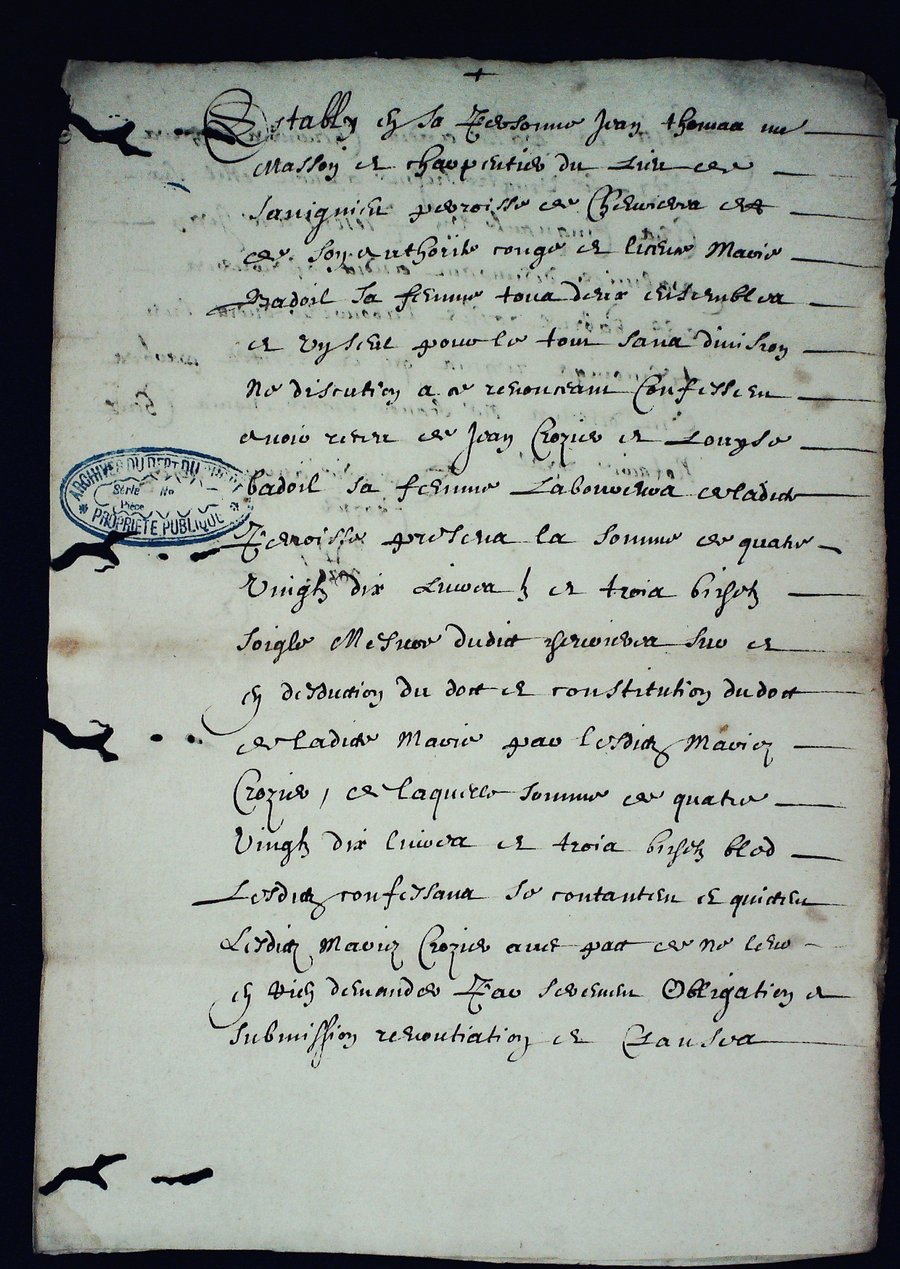 +
Estably en sa personne Jean thomas me
Masson et charpentier du Lieu de
Savignieu perroisse de Chewieres et
de son authorite conge et licene Marie
Badoil sa femme tous deux ensembles
et ung seul pour le tout sans division
Ne discution a ce renonceant Confessent
avoir receu de Jean Crozier et Louyse
badoil sa femme Laboureurs de ladicte
Perroisse presens la somme de quatre
Vingtz dix Livres t et trois bichetz
Soigle Mesure dudict chewieres sur et
en desduction du dott et constitution du dott
de ladicte Marie par lesdictz Mariez
Crozier, de laquelle somme de quatre
Vingtz dix livres et trois bichetz bled
Lesdictz confessans se contantent et quictent
Lesdictz Mariez Crozier avec pact de ne leur
en rien demander Par serement Obligation et
submission renontiation et Clauses
ARCHIVES DU DEPT DU
Série No
Pièce
* PROPRIETE PUBLIQUE *